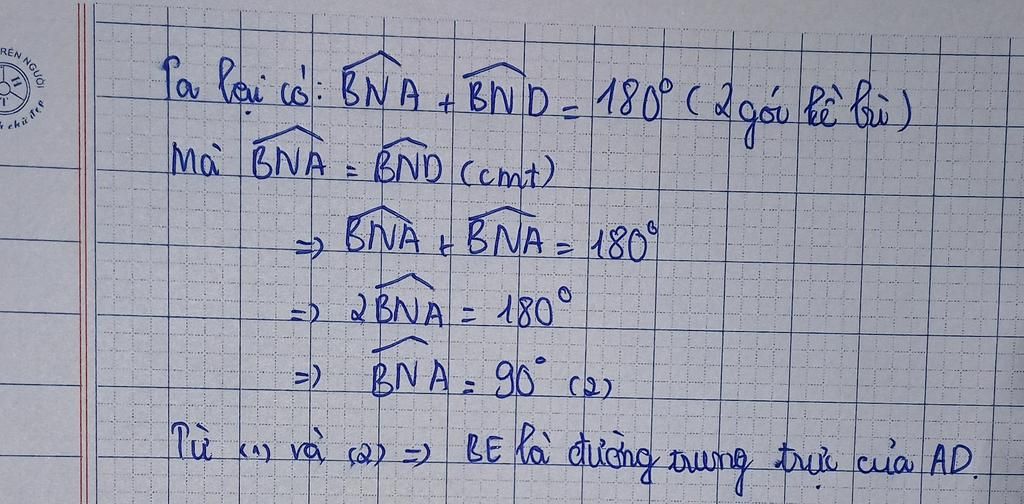 RÈN NGƯỜI
chữ đẹp
Ta lại có: $\widehat{BNA} + \widehat{BND} = 180^0$ (2 góc kề bù)
Mà $\widehat{BNA} = \widehat{BND}$ (cmt)
=> $\widehat{BNA} + \widehat{BNA} = 180^0$
=> $2\widehat{BNA} = 180^0$
=> $\widehat{BNA} = 90^0$ (2)
Từ (1) và (2) => BE là đường trung trực của AD.